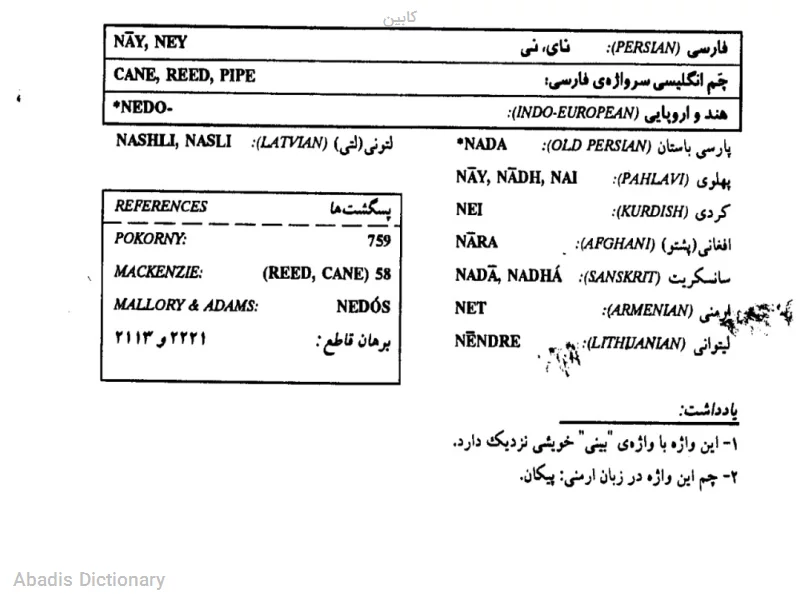 کابین
فارسی (PERSIAN): نای، نی NĀY, NEY
چَم انگلیسی سرواژه‌ی فارسی: CANE, REED, PIPE
هند و اروپایی (INDO-EUROPEAN): *NEDO-
پارسی باستان (OLD PERSIAN): *NADA
لتونی(لتی) (LATVIAN): NASHLI, NASLI
پهلوی (PAHLAVI): NĀY, NĀDH, NAI
کردی (KURDISH): NEI
افغانی(پشتو) (AFGHANI): NĀRA
سانسکریت (SANSKRIT): NADĀ, NADHÁ
ارمنی (ARMENIAN): NET
لیتوانی (LITHUANIAN): NĒNDRE
REFERENCES پسگشت‌ها
POKORNY: 759
MACKENZIE: (REED, CANE) 58
MALLORY & ADAMS: NEDÓS
برهان قاطع: ۲۲۲۱ و ۲۱۱۳
یادداشت:
۱- این واژه با واژه‌ی "بینی" خویشی نزدیک دارد.
۲- چم این واژه در زبان ارمنی: پیکان.
Abadis Dictionary